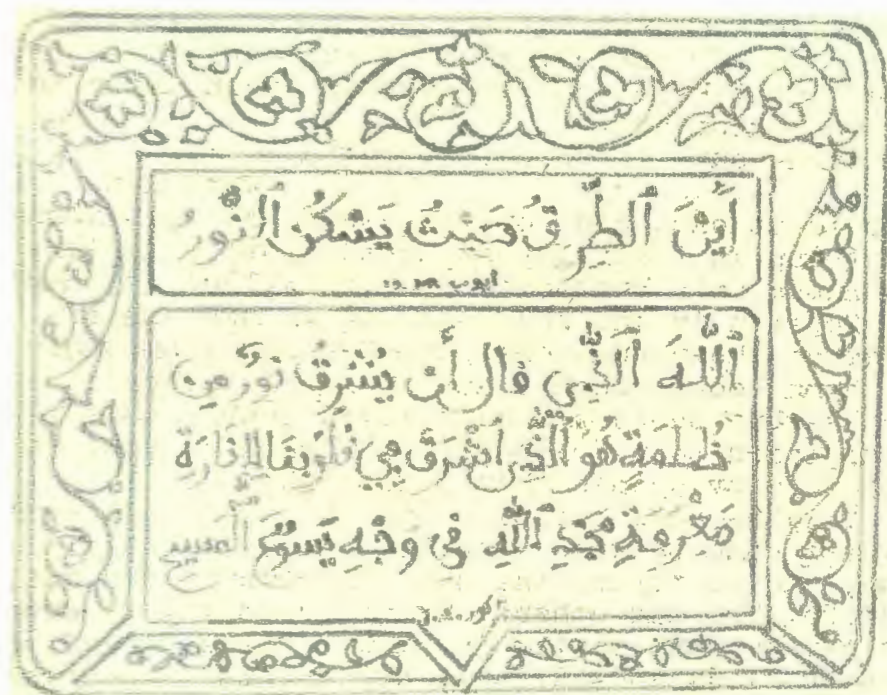 أَيْنَ ٱلطَّرِيقُ حَيْثُ يَسْكُنُ ٱلنُّورُ
أيوب
ٱللّٰهَ ٱلَّذِي قَالَ أَنْ يُشْرِقَ نُورٌ مِنْ
ظُلْمَةٍ هُوَ ٱلَّذِي أَشْرَقَ فِي قُلُوبِنَا لِإِنَارَةِ
مَعْرِفَةِ مَجْدِ ٱللّٰهِ فِي وَجْهِ يَسُوعَ ٱلْمَسِيحِ